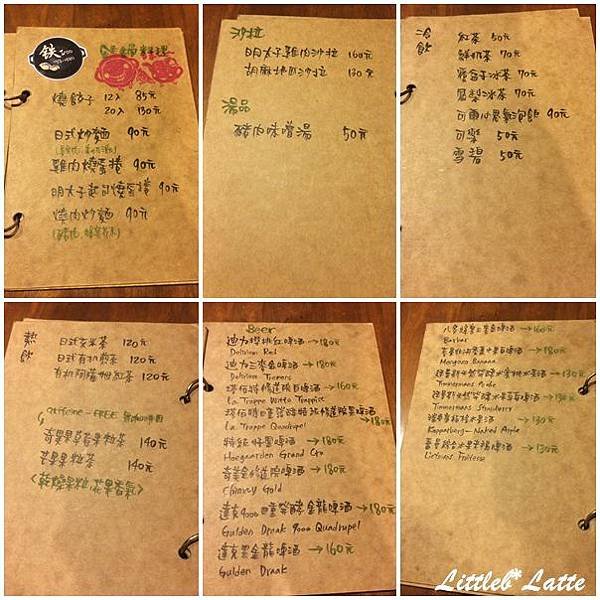 鉄
鍋料理
燒餃子 12入 85元
20入 130元
日式炒麵 90元
雞肉燒蛋捲 90元
明太子起司燒蛋捲 90元
燒肉炒麵 90元
沙拉
明太子雞肉沙拉 160元
胡麻地瓜沙拉 130元
湯品
豬肉味噌湯 50元
冷飲
紅茶 50元
鮮奶茶 70元
冰茶 70元
鳳梨冰茶 70元
可爾必思氣泡飲 90元
可樂 50元
雪碧 50元
熱飲
日式玄米茶 120元
日式有機煎茶 120元
有機阿薩姆紅茶 120元
Caffeine-FREE
奇異果草莓果粒茶 140元
芒果果粒茶 140元
<乾燥果粒,花果香氣>
Beer
迪力櫻桃紅啤酒→180元
Delirium Red
迪力三麥金啤酒→180元
Delirium Tremens
塔伯特修道院白啤酒→160元
La Trappe Witte Trappist
→180元
La Trappe Quadrupel
特級好圖啤酒→180元
Hoegaarden Grand Cru
奇美金修道院啤酒→180元
Chimay Gold
達克9000四重發酵金龍啤酒→180元
Gulden Draak 9000 Quadrupel
達克黑金龍啤酒→160元
Gulden Draak
→160元
Barbar
→180元
Mongozo Banana
→130元
Timmermans Peche
→130元
Timmermans Strawberry
→130元
Kopparberg-Naked Apple
→130元
Liefmans Fruitesse
Littleb* Latte